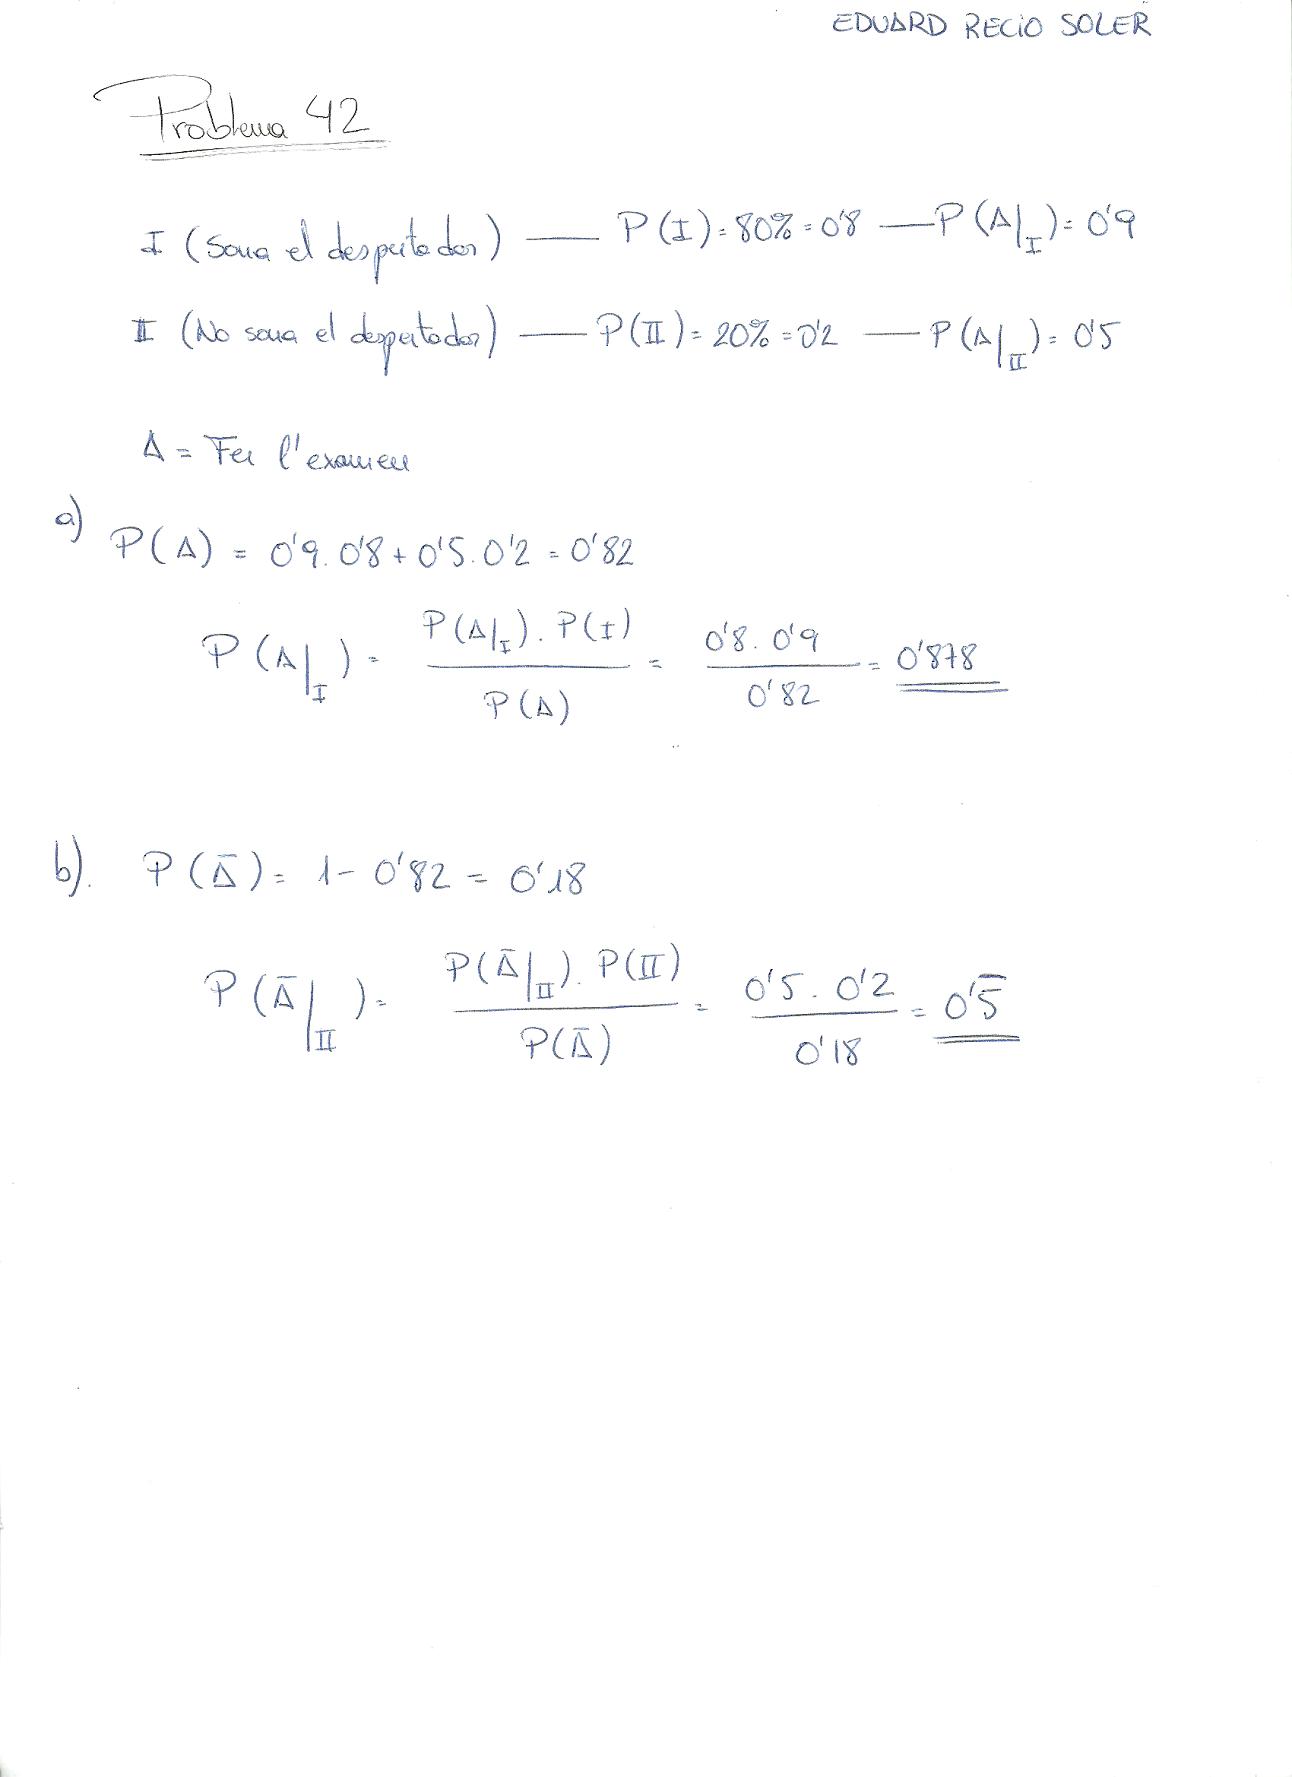 EDUARD RECIO SOLER
Problema 42
I (Sona el despertador) — P(I) = 80% = 0'8 — P(A|I) = 0'9
II (No sona el despertador) — P(II) = 20% = 0'2 — P(A|II) = 0'5
A = Fer l'examen
a)
P(A) = 0'9 . 0'8 + 0'5 . 0'2 = 0'82
P(A|I) = P(A|I) . P(I) / P(A) = 0'8 . 0'9 / 0'82 = 0'878
b). P(Ā) = 1 - 0'82 = 0'18
P(Ā|II) = P(Ā|II) . P(II) / P(Ā) = 0'5 . 0'2 / 0'18 = 0'5̄